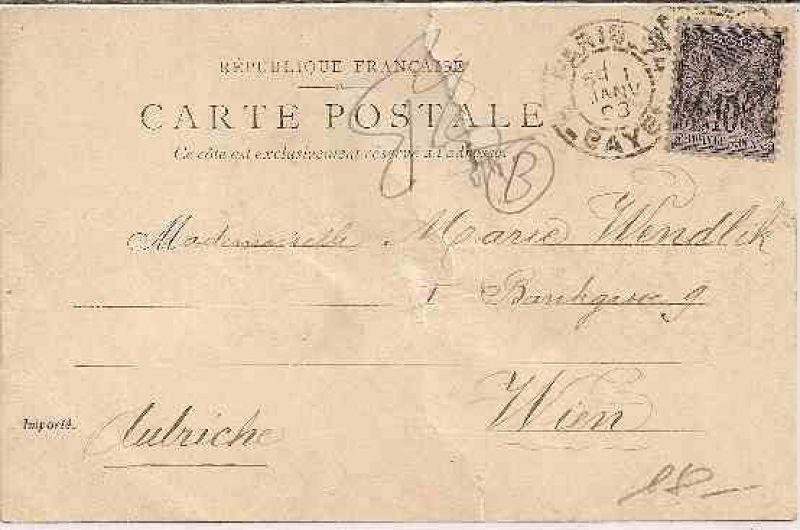 RÉPUBLIQUE FRANÇAISE
CARTE POSTALE
Ce côté est exclusivement réservé à l'adresse.
PARIS
JANV
GAY
10
B
Mademoiselle Marie Wondlik
I Bankgasse 9
Wien
Importé.
Autriche